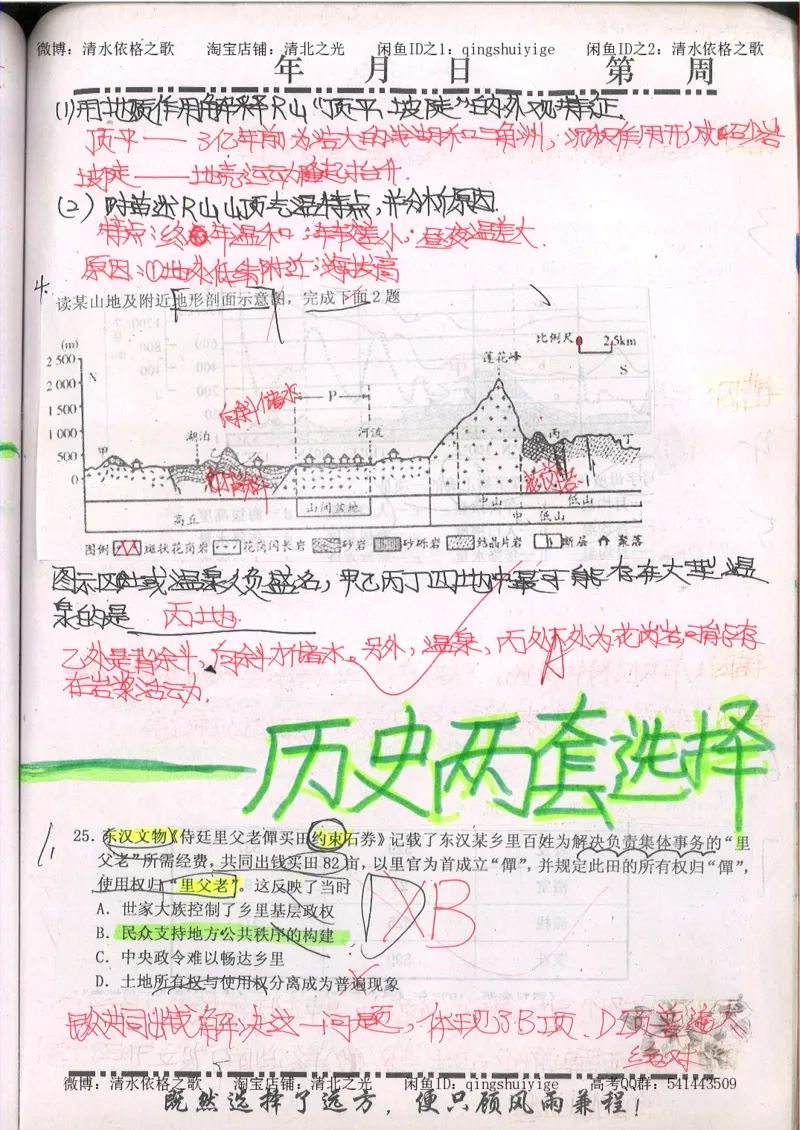 微博：清水依格之歌 淘宝店铺：清北之光 闲鱼ID之1：qingshuiyige 闲鱼ID之2：清水依格之歌
年 月 日 第 周
(1)用地质作用解释R山“顶平、坡陡”的外观特征.
顶平—— 3亿年前为浩大的浅湖和三角洲，沉积作用形成砂岩
坡陡——地壳运动隆起抬升.
(2)附近R山山顶气温特点，并分析原因.
特点：终年温和；年较差小；昼夜温差大.
原因：①地处低纬附近；海拔高
4. 读某山地及附近地形剖面示意图，完成下面2题
比例尺 2.5km
莲花峰
(m)
2 500
N
S
2 000
P
向斜储水
1 500
河流
1 000
湖泊
甲
丙
丁
500
花岗岩
0
山间盆地
中山
低山
高丘
中、低山
图例 斑状花岗岩 花岗闪长岩 砂岩 砂砾岩 结晶片岩 断层 聚落
图示区域温泉久负盛名，甲乙丙丁四地中最可能存在大型温
泉的是 丙地.
乙处是背斜，向斜才储水。另外，温泉，丙处下处为花岗岩，可能存
在岩浆活动.
——历史两套选择
1. 25. 东汉文物《侍廷里父老僤买田约束石券》记载了东汉某乡里百姓为解决负责集体事务的“里
父老”所需经费，共同出钱买田82亩，以里官为首成立“僤”，并规定此田的所有权归“僤”，
使用权归“里父老”。这反映了当时
D B
A．世家大族控制了乡里基层政权
B．民众支持地方公共秩序的构建
C．中央政令难以畅达乡里
D．土地所有权与使用权分离成为普遍现象
民众共同出钱解决这一问题，体现了B项.D项普遍太
绝对
微博：清水依格之歌 淘宝店铺：清北之光 闲鱼ID：qingshuiyige 高考QQ群：541443509
既然选择了远方，便只顾风雨兼程！